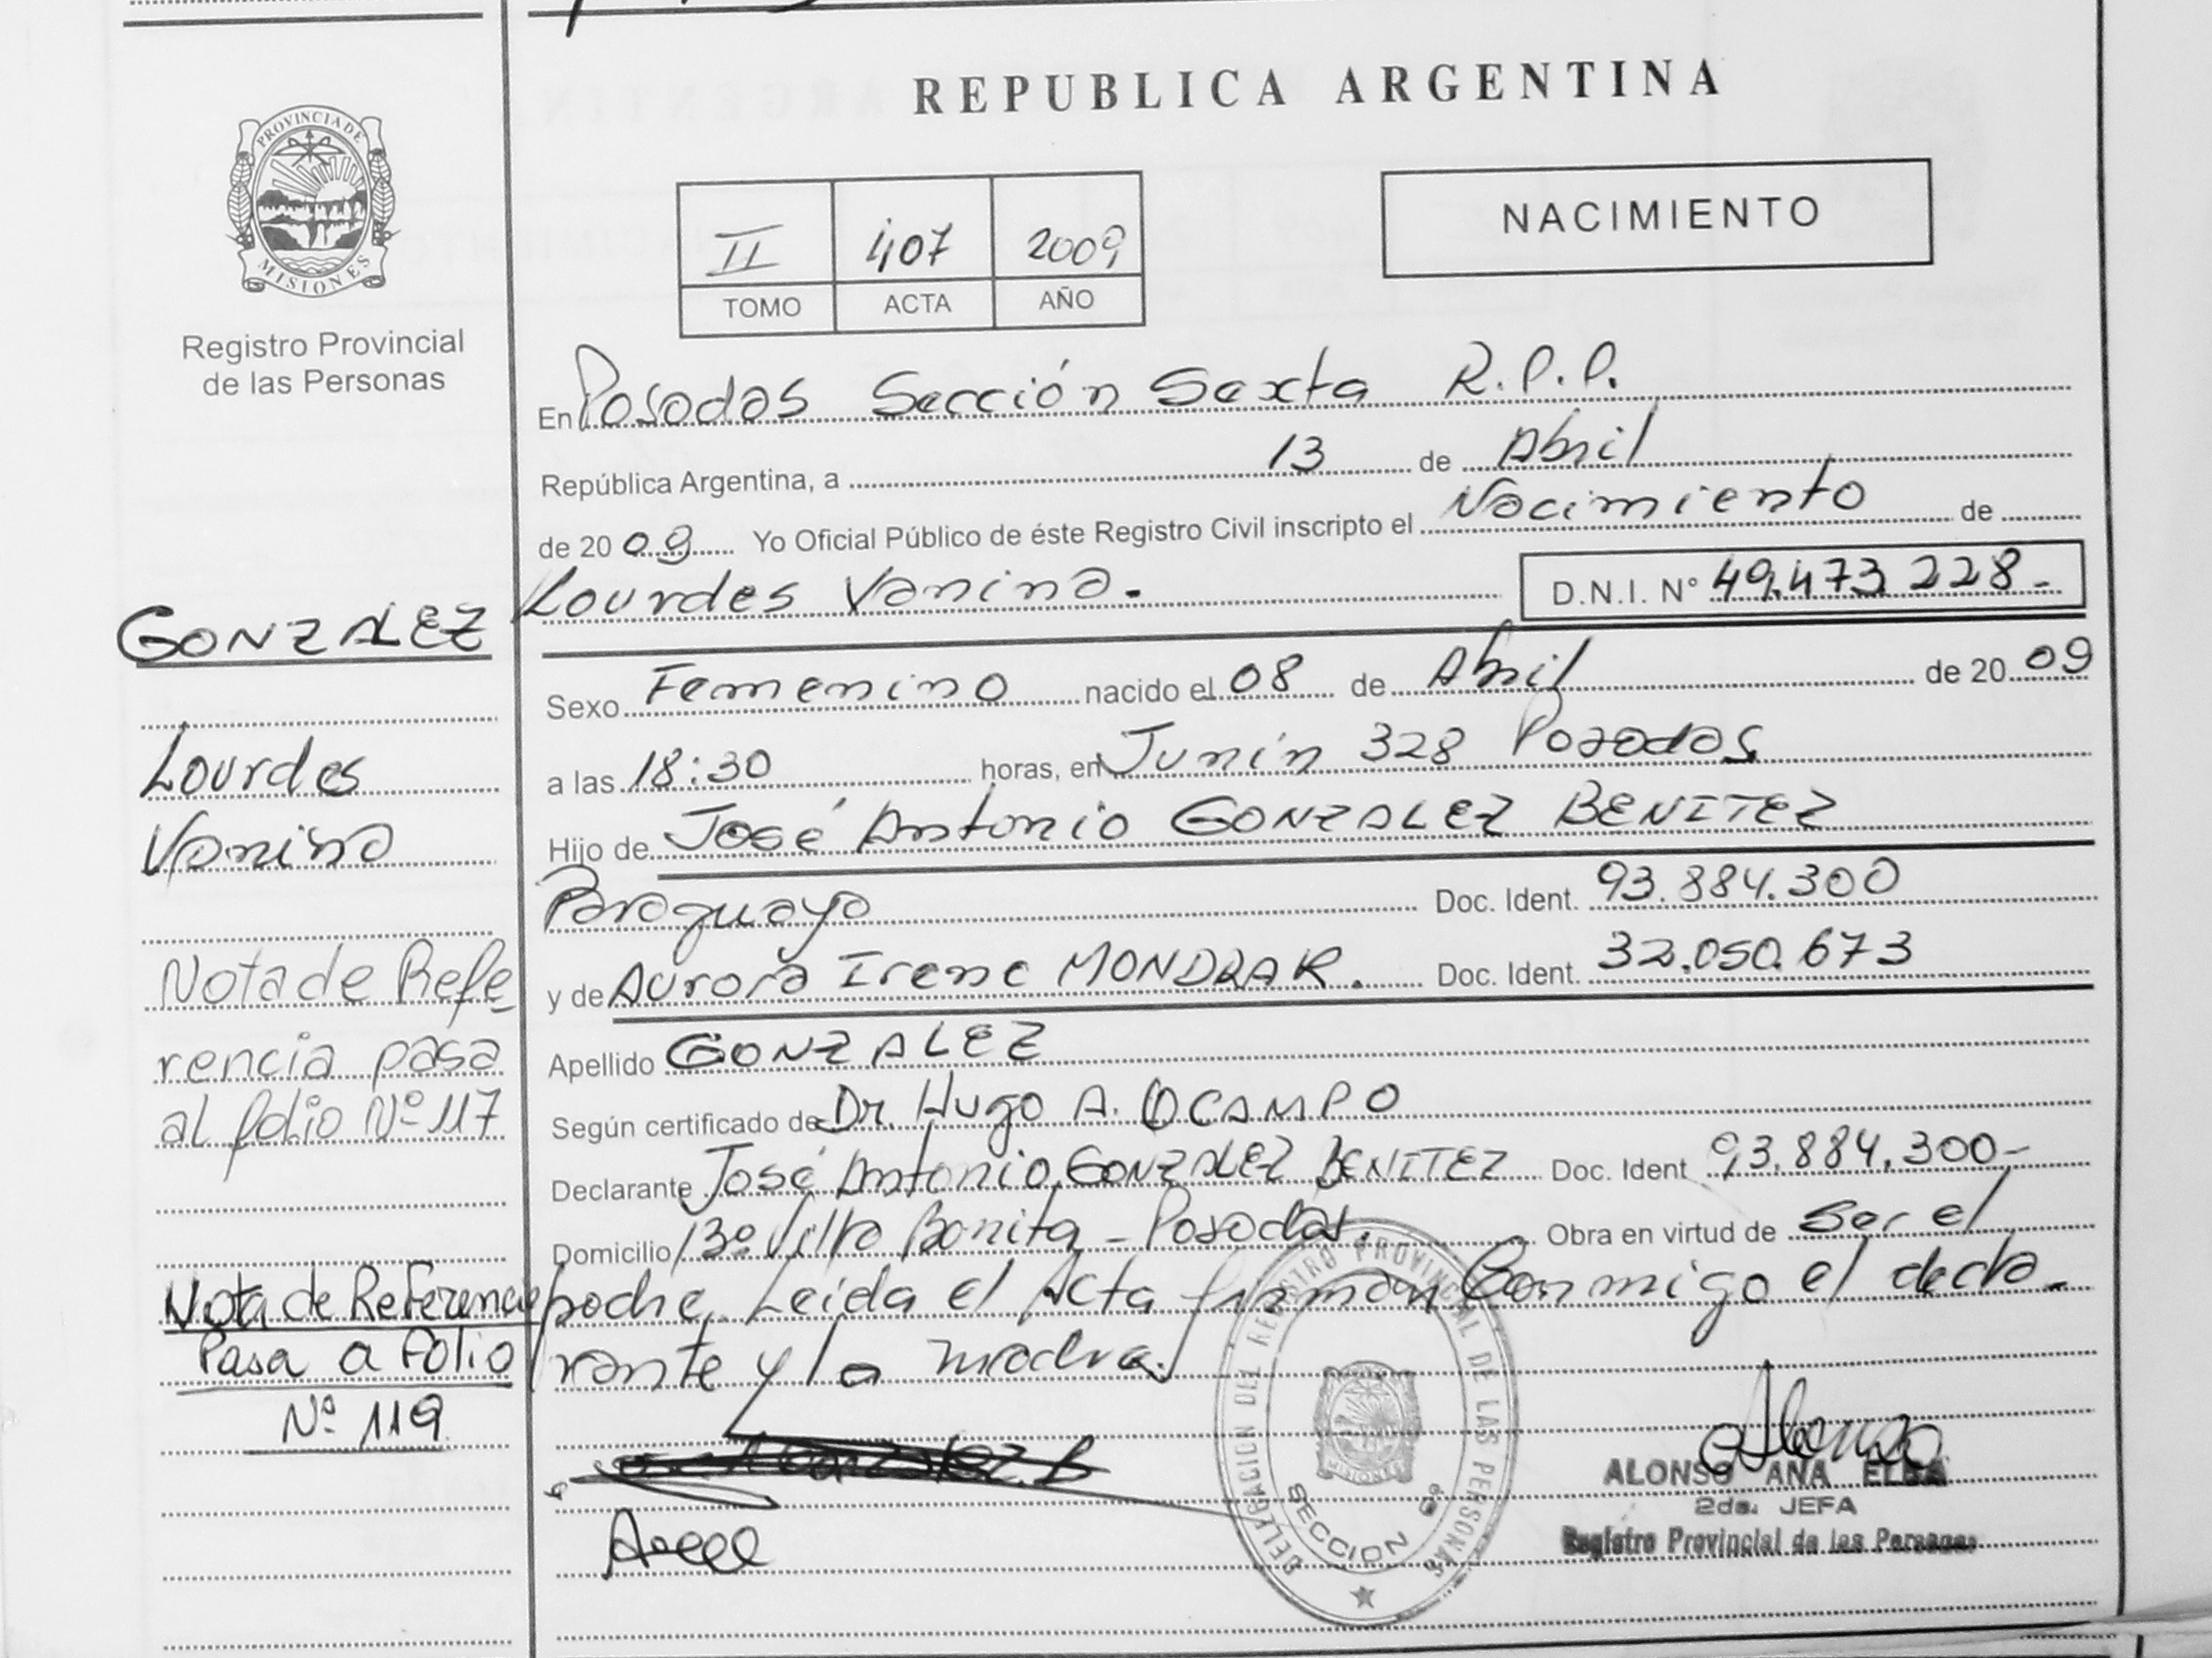 REPUBLICA ARGENTINA
PROVINCIA DE
MISIONES
Registro Provincial
de las Personas
II 407 2009
TOMO ACTA AÑO
NACIMIENTO
En Posadas Sección Sexta R.P.P.
República Argentina, a 13 de Abril
de 2009 Yo Oficial Público de éste Registro Civil inscripto el Nacimiento de
Lourdes Vanina. D.N.I. N° 49.473.228-
Sexo Femenino nacido el 08 de Abril de 2009
a las 18:30 horas, en Junín 328 Posadas
Hijo de José Antonio GONZALEZ BENITEZ
Paraguayo Doc. Ident. 93.884.300
y de Aurora Irene Doc. Ident. 32.050.673
Apellido GONZALEZ
Según certificado de Dr. Hugo A. OCAMPO
Declarante José Antonio GONZALEZ BENITEZ Doc. Ident 93.884.300-
Domicilio 13º Villa Bonita - Posadas. Obra en virtud de Ser el
padre, Leída el Acta firman Conmigo el decla-
rante y la madre.
GONZALEZ
Lourdes
Vanina
Nota de Refe-
rencia pasa
al folio Nº 117
Nota de Referencia
Pasa a Folio
Nº 119
DELEGACION DEL REGISTRO PROVINCIAL DE LAS PERSONAS
MISIONES
SECCION 6ª
ALONSO ANA ELBA
2da. JEFA
Registro Provincial de las Personas